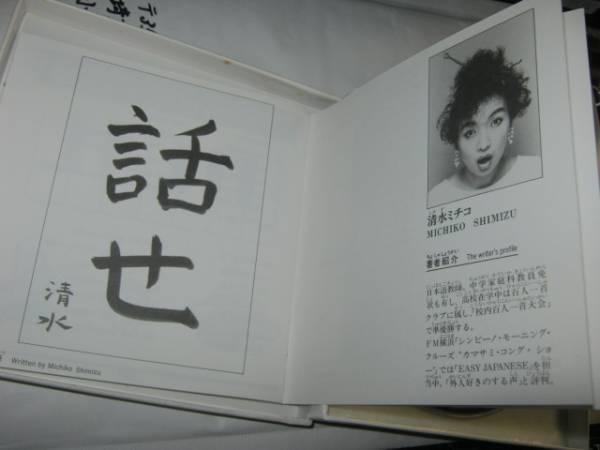 話せ
清水
Written by Michiko Shimizu
清水ミチコ
MICHIKO SHIMIZU
著者紹介 The writer's profile
日本語教師。中学家庭科教員免
状も有し、高校在学中は百人一首
クラブに属し、「校内百人一首大会」
で準優勝する。
FM横浜「シンビーノ・モーニング・
クルーズ"カマサミ・コング・ショ
ー"」では「EASY JAPANESE」を担
当中。「外人好きのする声」と評判。